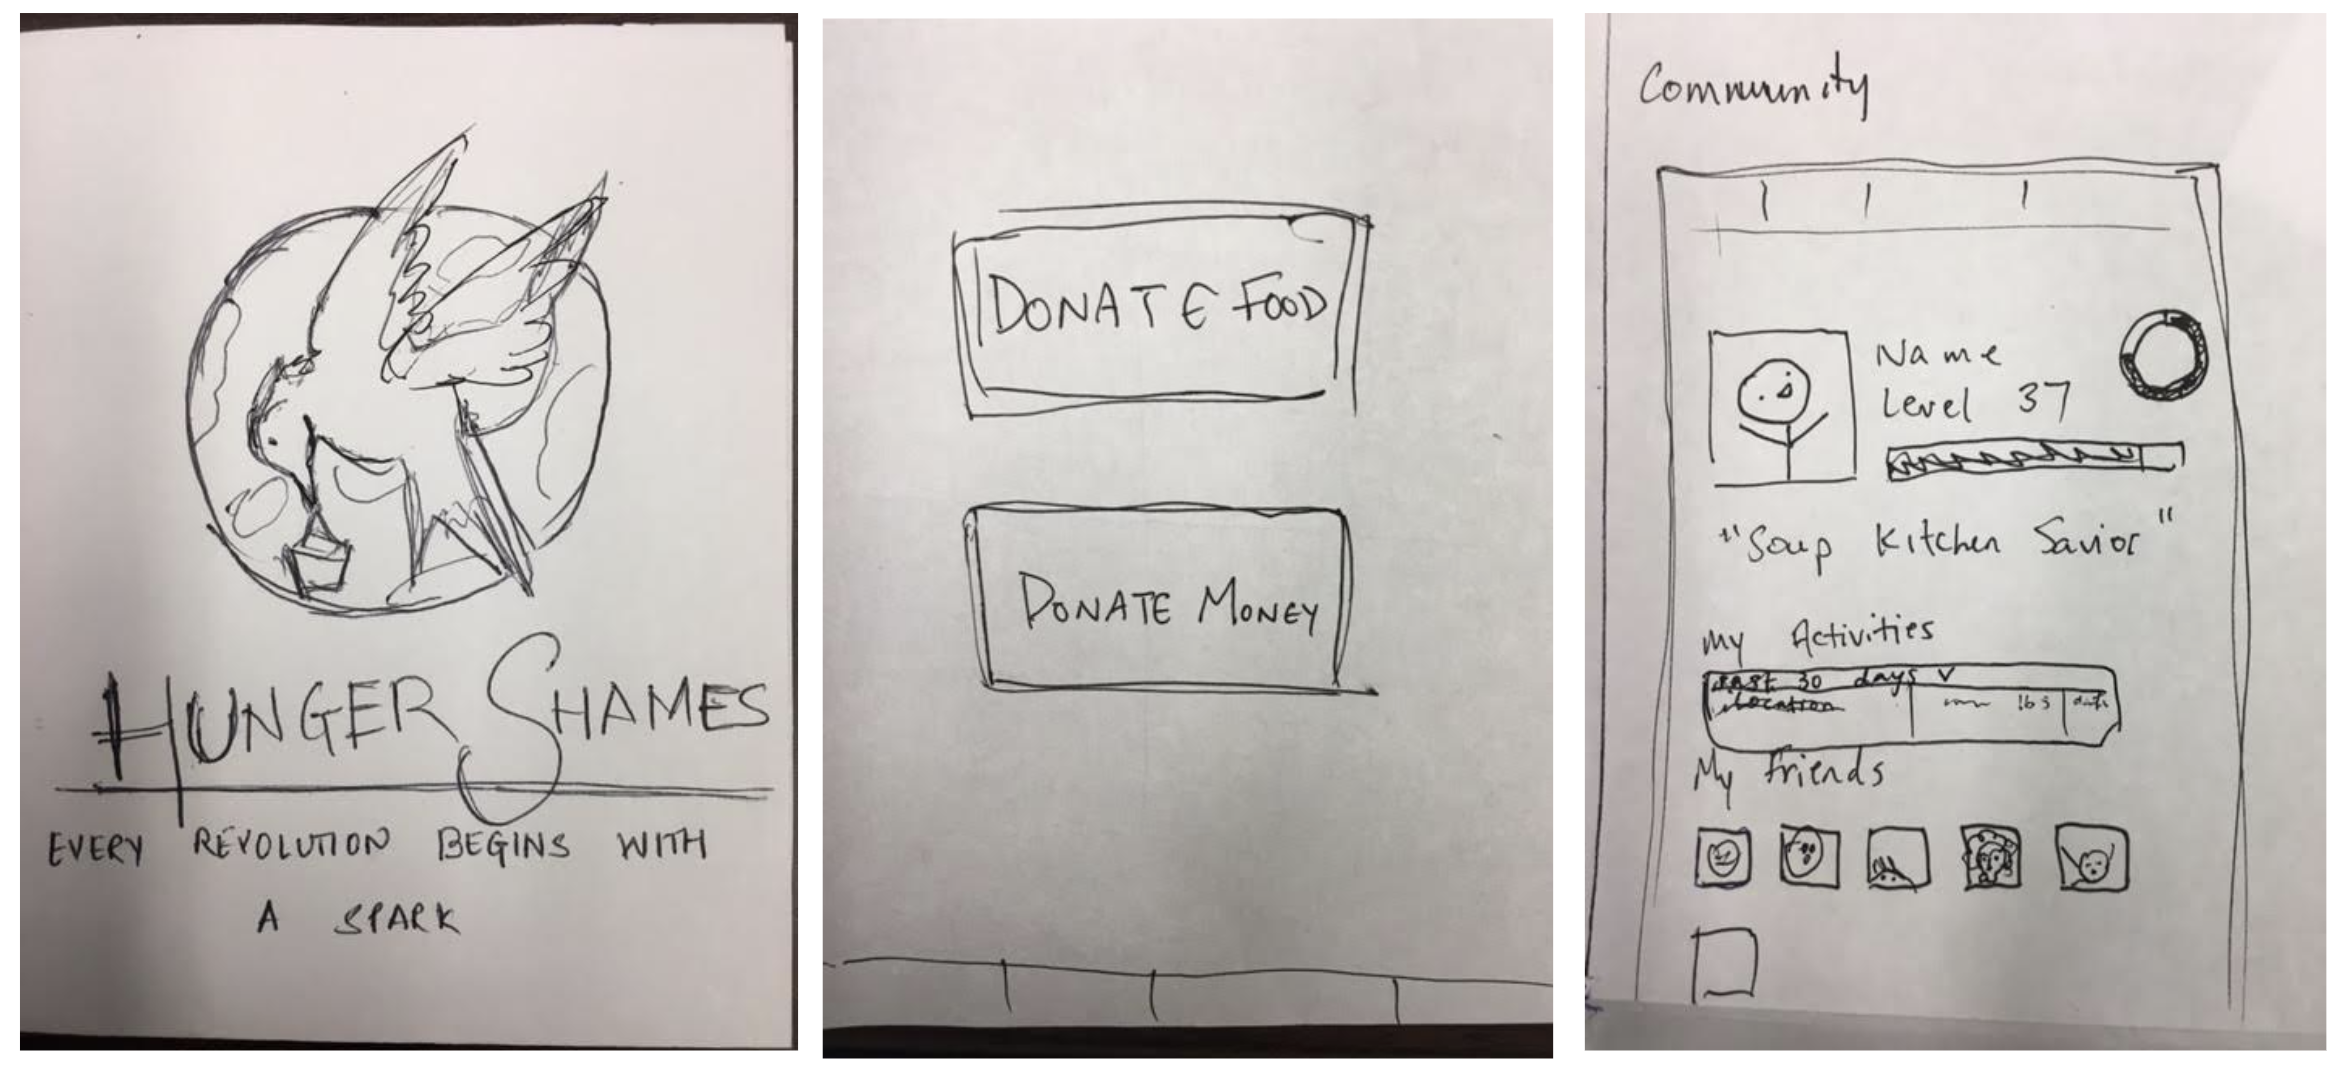 HUNGER SHAMES
EVERY REVOLUTION BEGINS WITH
A SPARK
DONATE FOOD
DONATE MONEY
Community
Name
Level 37
"Soup Kitchen Savior"
My Activities
Past 30 days v
Location lbs date
My Friends